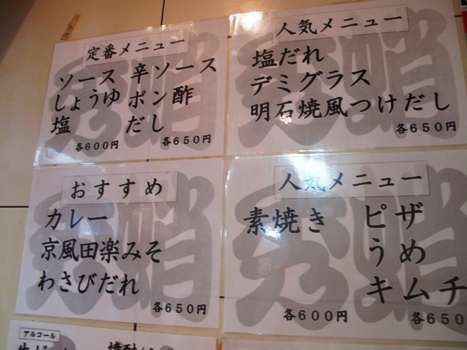 定番メニュー
ソース 辛ソース
しょうゆ ポン酢
塩 だし
各600円 各650円
人気メニュー
塩だれ
デミグラス
明石焼風つけだし
各650円
おすすめ
カレー
京風田楽みそ
わさびだれ
各650円
人気メニュー
素焼き ピザ
うめ
キムチ
各600円 各650円
アルコール